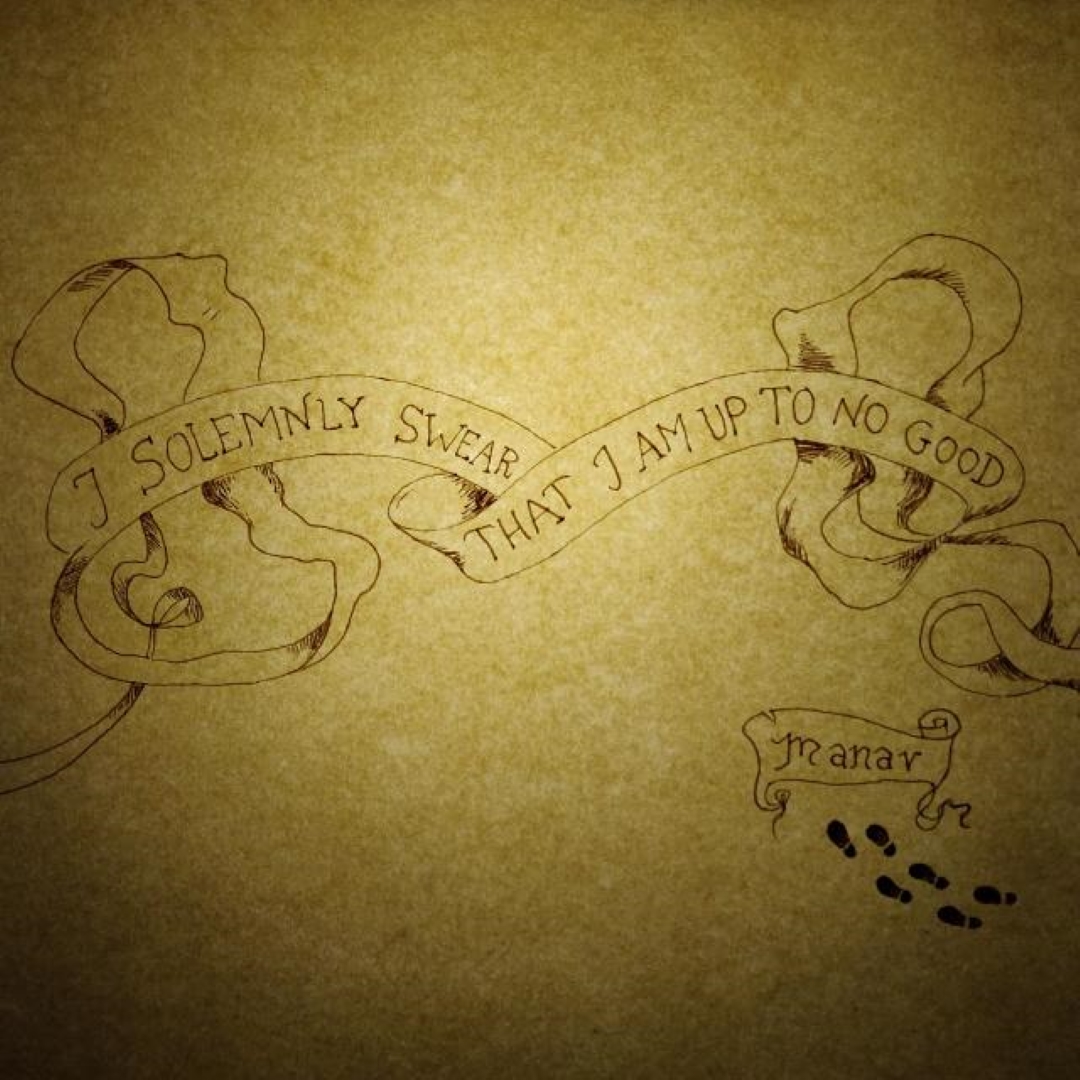 I SOLEMNLY SWEAR
THAT I AM UP TO NO GOOD
manav